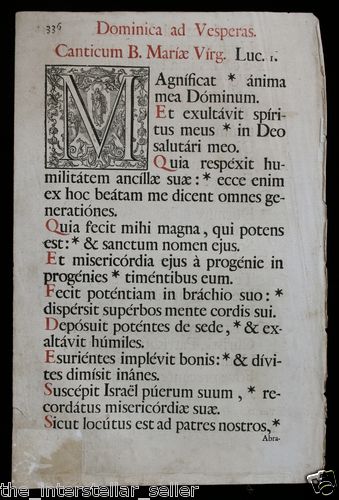 336
Dominica ad Vesperas.
Canticum B. Mariæ Virg. Luc. 1.
MAgníficat * ánima
mea Dóminum.
Et exultávit spíri-
tus meus * in Deo
salutári meo.
Quia respéxit hu-
militátem ancíllæ suæ: * ecce enim
ex hoc beátam me dicent omnes ge-
neratiónes.
Quia fecit mihi magna, qui potens
est: * & sanctum nomen ejus.
Et misericórdia ejus à progénie in
progénies * timéntibus eum.
Fecit poténtiam in bráchio suo: *
dispérsit supérbos mente cordis sui.
Depósuit poténtes de sede, * & ex-
altávit húmiles.
Esuriéntes implévit bonis: * & dívi-
tes dimísit inánes.
Suscépit Israël púerum suum, * re-
cordátus misericórdiæ suæ.
Sicut locútus est ad patres nostros, *
Abra-
the_interstellar_seller